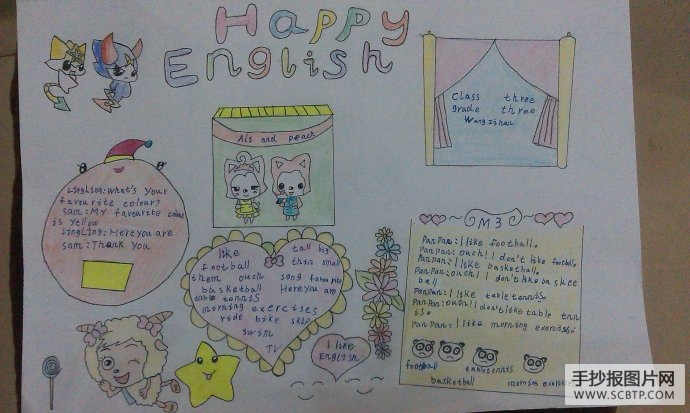 Happy
English
Class three
grade three
Wangzihan
Ali and peach
LingLing: what's your
favourite colour?
Sam: My favourite color
is yellow
LingLing: Here you are
Sam: Thank You
like tall big
football thin small
them ouch song favourite
basketball Here you are
table tennis
morning exercises
ride bike skip
swim
TV
I like
English
M3
PanPan: I like football.
PanPan: ouch! I don't like football.
PanPan: I like basketball.
PanPan: ouch! I don't like basket
ball
PanPan: I like table tennis.
PanPan: ouch! I don't like table tnn
is.
PanPan: I like morning exercises
football
basketball
table tennis
morning exercises
手抄报图片网
WWW.SCBTP.COM